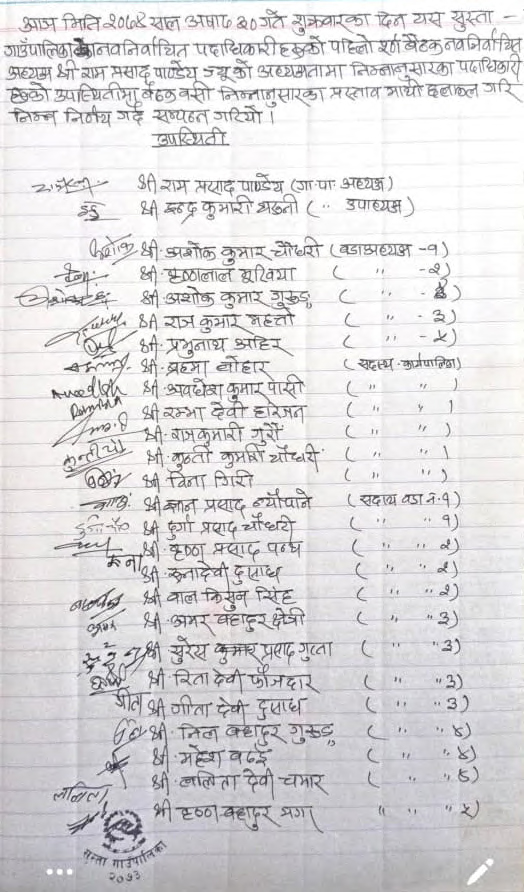 आज मिति २०७४ साल अषाढ ३० गते शुक्रबारका दिन यस सुस्ता -
गाउँपालिकाका नवनिर्वाचित पदाधिकारी हरुको पहिलो बैठक नवनिर्वाचित
अध्यक्ष श्री राम प्रसाद पाण्डेय ज्यूको अध्यक्षतामा निम्नानुसारका पदाधिकारी
हरुको उपस्थितीमा बैठक बसी निम्नानुसारका प्रस्ताव माथी छलफल गरि
निम्न निर्णय गर्दै सम्पन्न गरियो।
उपस्थिती
श्री राम प्रसाद पाण्डेय (गा.पा. अध्यक्ष)
श्री इन्द्र कुमारी (" उपाध्यक्ष)
श्री अशोक कुमार चौधरी (वडाअध्यक्ष -१)
श्री कृष्णलाल मुखिया ( " -२)
श्री अशोक कुमार गुरुङ ( " - )
श्री राज कुमार महतो ( " - ३)
श्री प्रभुनाथ अहिर ( " - ५)
श्री ब्रहमा लोहार (सदस्य कार्यपालिका)
श्री अवधेश कुमार पासी ( " " )
श्री रम्भा देवी हरिजन ( " " )
श्री राजकुमारी गुरौ ( " " )
कुन्ती चौ श्री कुन्ती कुमारी चौधरी ( " " )
श्री विना गिरी ( " " )
श्री ज्ञान प्रसाद न्यौपाने (सदस्य वडा नं. १)
श्री दुर्गा प्रसाद चौधरी ( " " १)
श्री कृष्ण प्रसाद पन्थ ( " " २)
रुना श्री रुनादेवी दुसाध ( " " २)
श्री बाल किसुन सिंह ( " " २)
श्री अमर बहादुर क्षेत्री ( " " ३)
श्री सुरेस कुमार प्रसाद गुप्ता ( " " ३)
श्री रिता देवी फौजदार ( " " ३)
गीता श्री गीता देवी दुसाध ( " " ३)
श्री निल बहादुर गुरुङ ( " " ४)
श्री महेश बढई ( " " ४)
ललिता श्री ललिता देवी चमार ( " " ५)
श्री कृष्ण बहादुर मगर " " " ५)
सुस्ता गाउँपालिका
२०७३